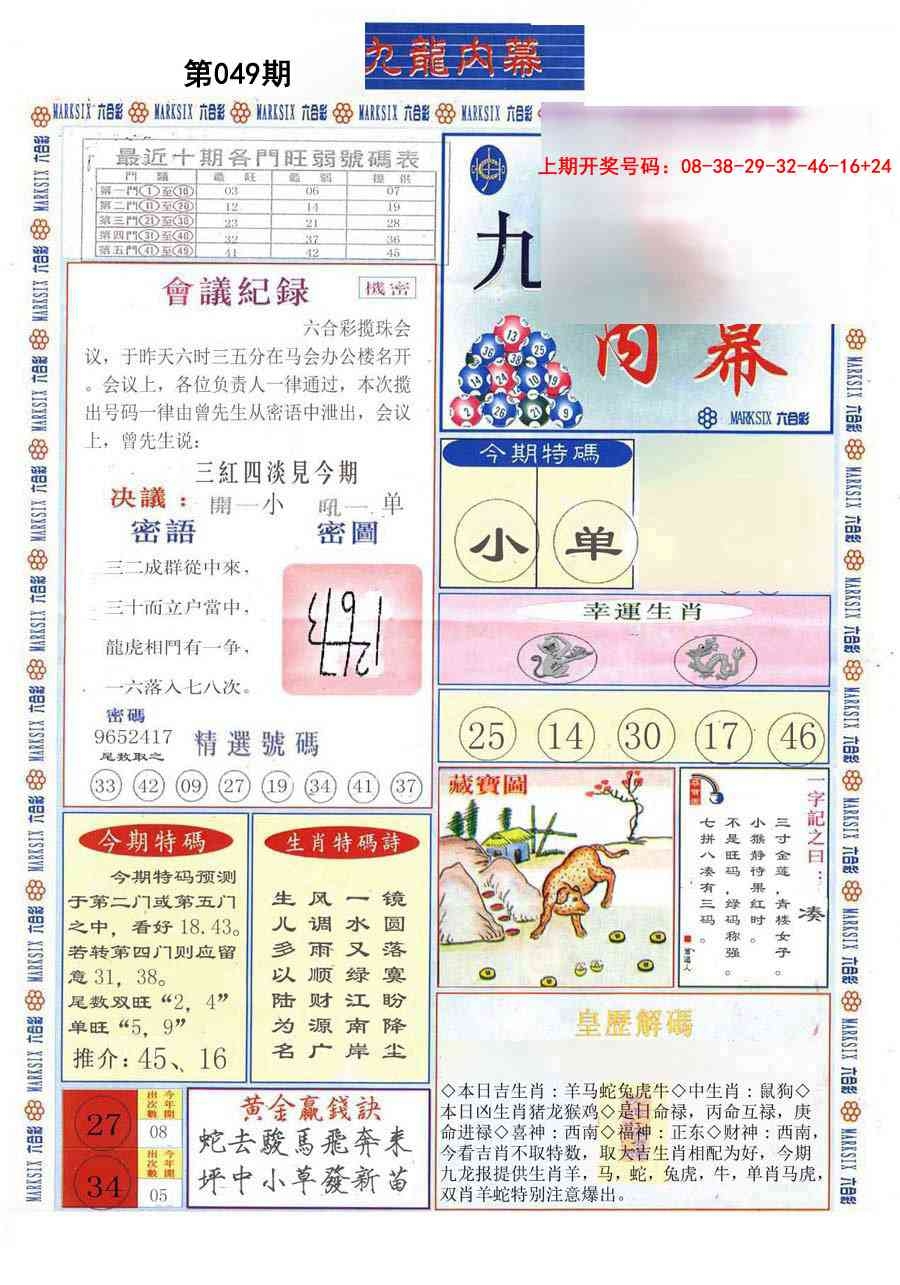 第049期
九龍内幕
MARKSIX 六合彩 MARKSIX 六合彩 MARKSIX 六合彩 MARKSIX 六合彩 MARKSIX 六合彩
最近十期各門旺弱號碼表
門 類 最 旺 最 弱 提 供
第一門①至⑩ 03 06 07
第二門⑪至⑳ 12 14 19
第三門㉑至㉚ 23 21 28
第四門㉛至㊵ 32 37 36
第五門㊶至㊾ 41 42 45
上期开奖号码：08-38-29-32-46-16+24
九
内 幕
13
36 38 25
14 24 10 19
2 26 21 9
MARKSIX 六合彩
會議紀録
機密
六合彩揽珠会
议，于昨天六时三五分在马会办公楼名开
。会议上，各位负责人一律通过，本次揽
出号码一律由曾先生从密语中泄出，会议
上，曾先生说：
三紅四淡見今期
决議：開一小 吼一单
密語
密圖
三二成群從中來，
三十而立户當中，
龍虎相鬥有一争，
一六落入七八次。
密碼
9652417
尾数取之
精選號碼
33 42 09 27 19 34 41 37
今期特碼
小 单
幸運生肖
25 14 30 17 46
今期特碼
今期特码预测
于第二门或第五门
之中，看好18.43。
若转第四门则应留
意31，38。
尾数双旺“2，4”
单旺“5，9”
推介：45、16
生肖特碼詩
生 风 一 镜
儿 调 水 圆
多 雨 又 落
以 顺 绿 寞
陆 财 江 盼
为 源 南 降
名 广 岸 尘
藏寶圖
一字記之曰：凑
三寸金莲，青楼女子。
小猴静待果红时。
不是旺码，绿码称强。
七拼八凑有三码。
27
今年開出次數
08
34
今年開出次數
05
黄金贏錢訣
蛇去駿馬飛奔来
坪中小草發新苗
皇歷解碼
◇本日吉生肖：羊马蛇兔虎牛◇中生肖：鼠狗◇
本日凶生肖猪龙猴鸡◇是日命禄，丙命互禄，庚
命进禄◇喜神：西南◇福神：正东◇财神：西南，
今看吉肖不取特数，取大吉生肖相配为好，今期
九龙报提供生肖羊，马，蛇，兔虎，牛，单肖马虎，
双肖羊蛇特别注意爆出。